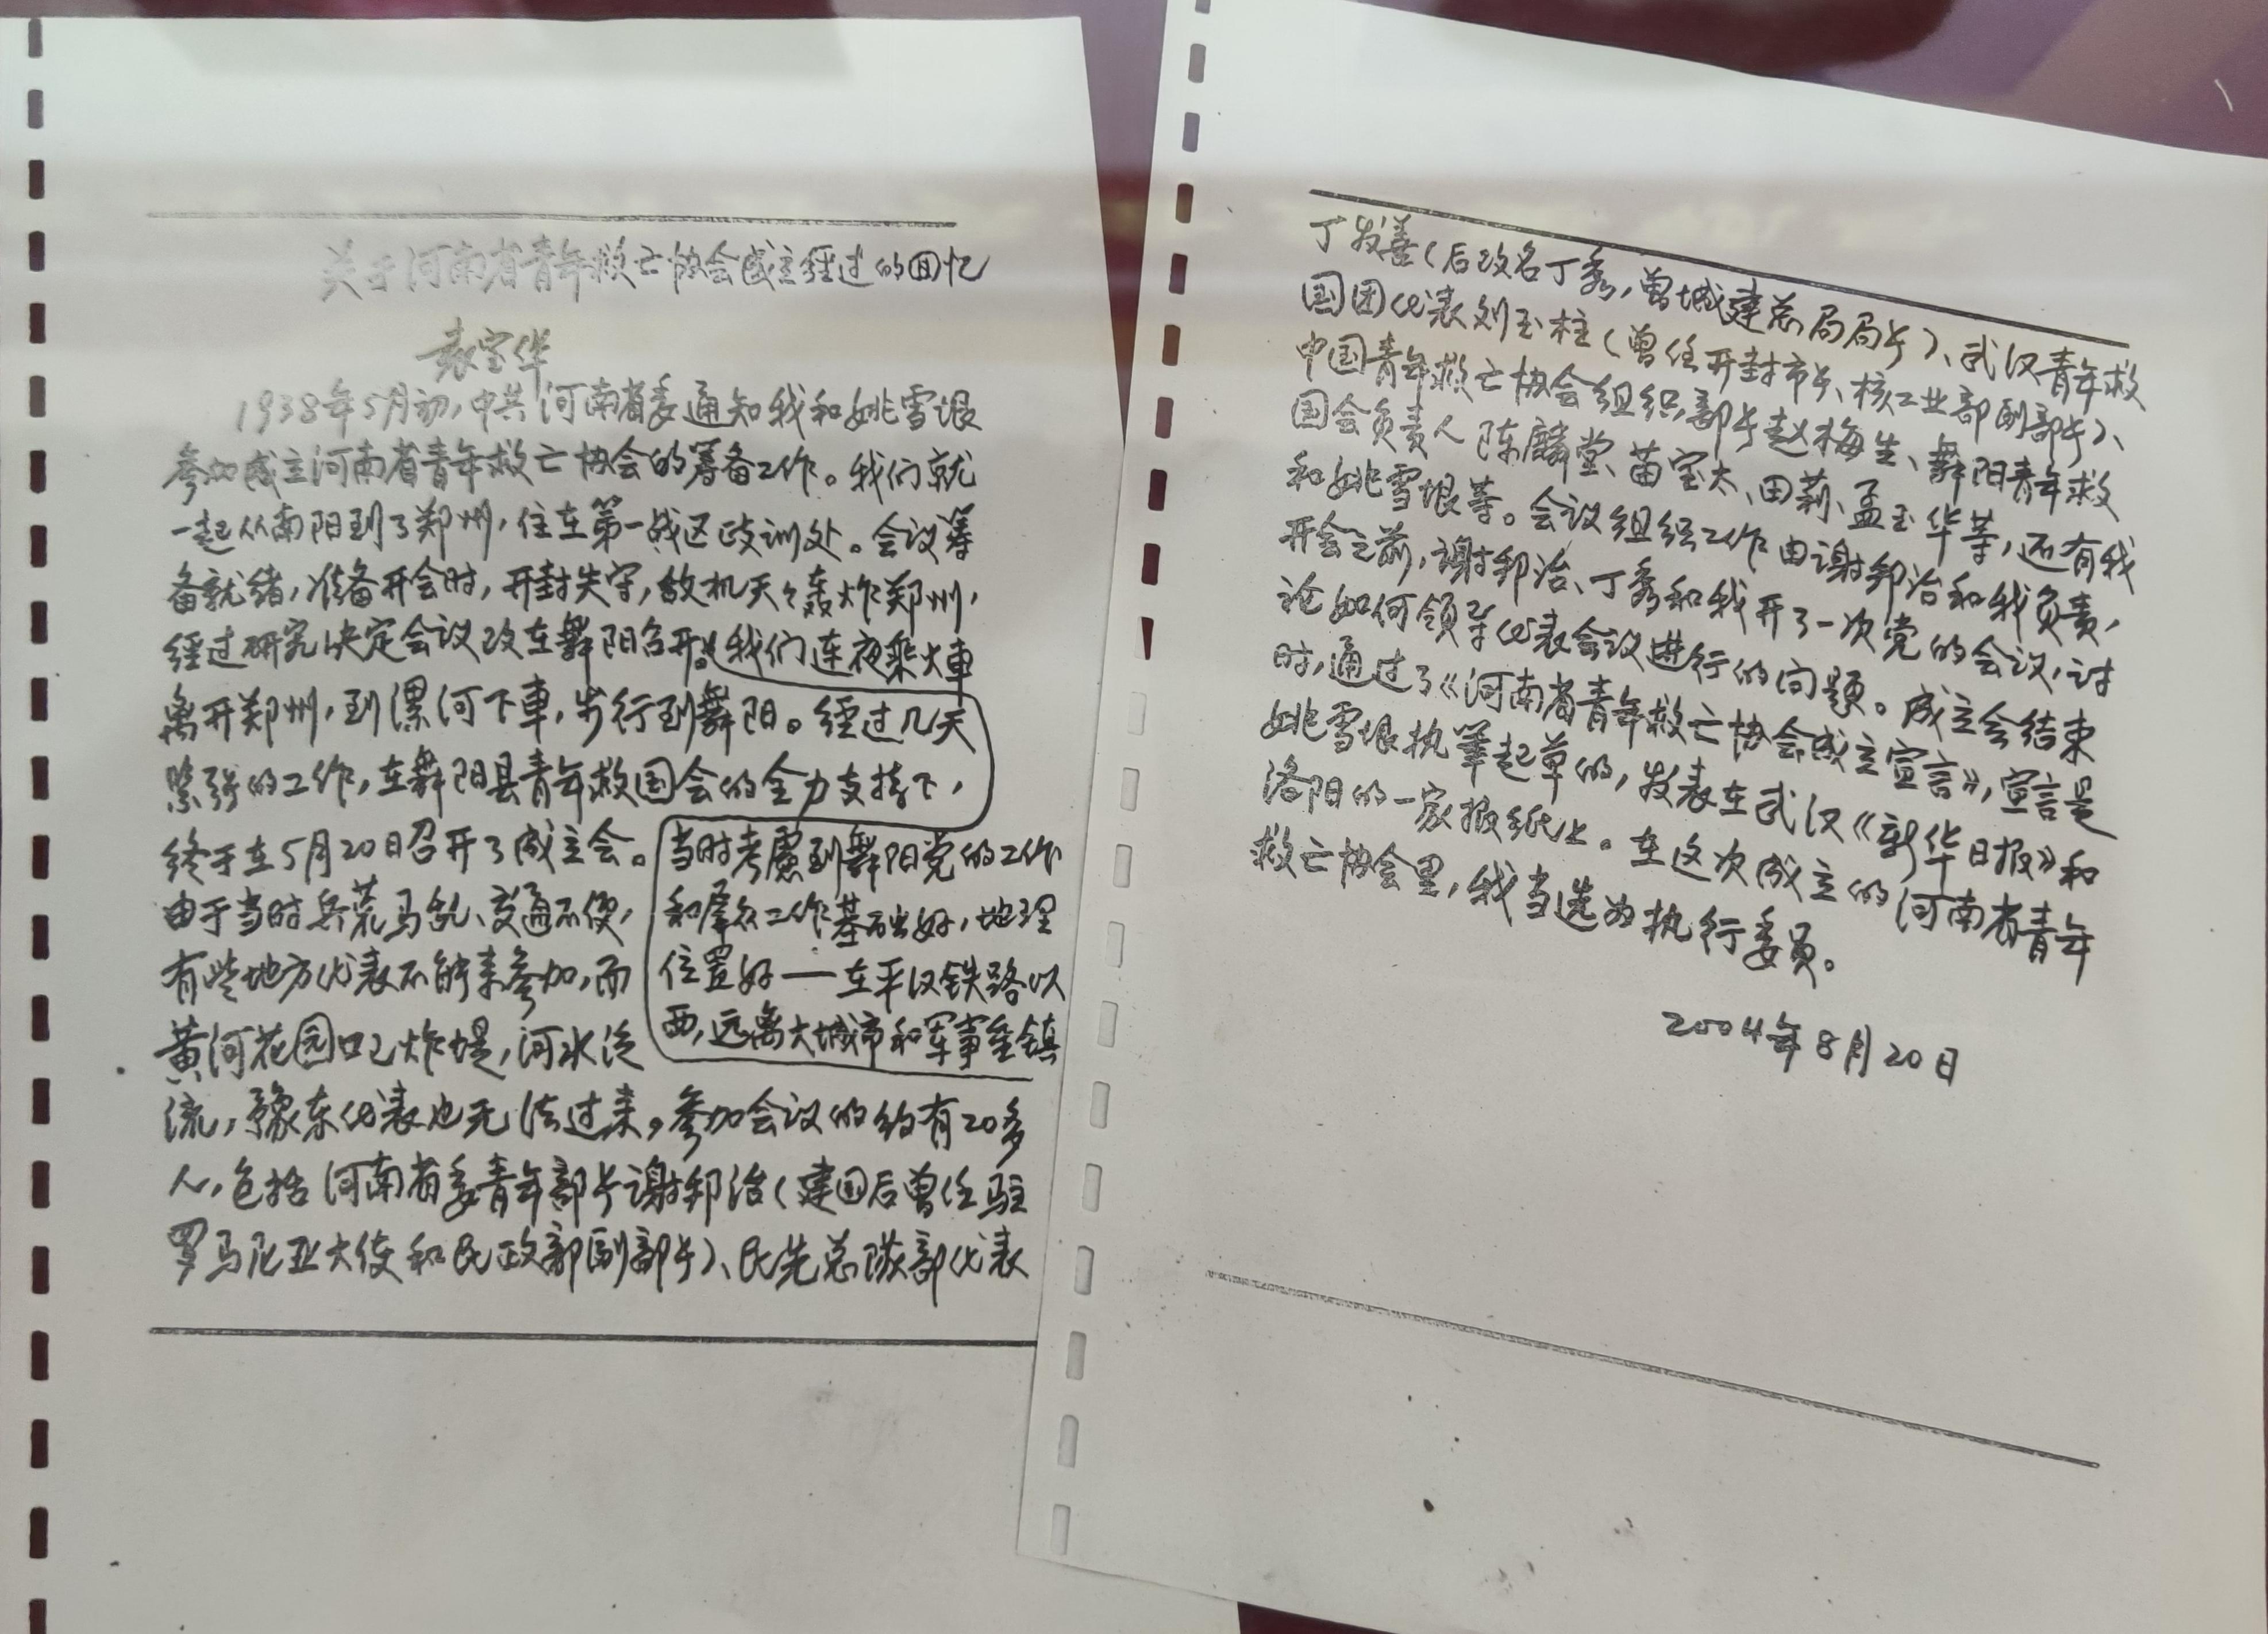 关于河南省青年救亡协会成立经过的回忆
袁宝华
1938年5月初,中共河南省委通知我和姚雪垠
参加成立河南省青年救亡协会的筹备工作。我们就
一起从南阳到了郑州,住在第一战区政训处。会议筹
备就绪,准备开会时,开封失守,敌机天天轰炸郑州,
经过研究决定会议改在舞阳召开。我们连夜乘火車
离开郑州,到漯河下車,步行到舞阳。经过几天
紧张的工作,在舞阳县青年救国会的全力支持下,
终于在5月20日召开了成立会。
由于当时兵荒马乱、交通不便,
有些地方代表不能来参加,而
黄河花园口已炸堤,河水泛
当时考慮到舞阳党的工作
和群众工作基础好,地理
位置好——在平汉铁路以
西,远离大城市和军事重镇
流,豫东代表也无法过来。参加会议的约有20多
人,包括河南省委青年部长谢邦治(建国后曾任驻
罗马尼亚大使和民政部副部长)、民先总队部代表
丁发善(后改名丁秀,曾城建总局局长)、武汉青年救
国团代表刘玉柱(曾任开封市长、核工业部副部长)、
中国青年救亡协会组织部长赵梅生、舞阳青年救
国会负责人陈麟堂、苗宝太、田蔪、孟玉华等,还有我
和姚雪垠等。会议组织工作由谢邦治和我负责,
开会之前,谢邦治、丁秀和我开了一次党的会议,讨
论如何领导代表会议进行的问题。成立会结束
时,通过了《河南省青年救亡协会成立宣言》,宣言是
姚雪垠执筆起草的,发表在武汉《新华日报》和
洛阳的一家报纸上。在这次成立的河南省青年
救亡协会里,我当选为执行委员。
2004年8月20日